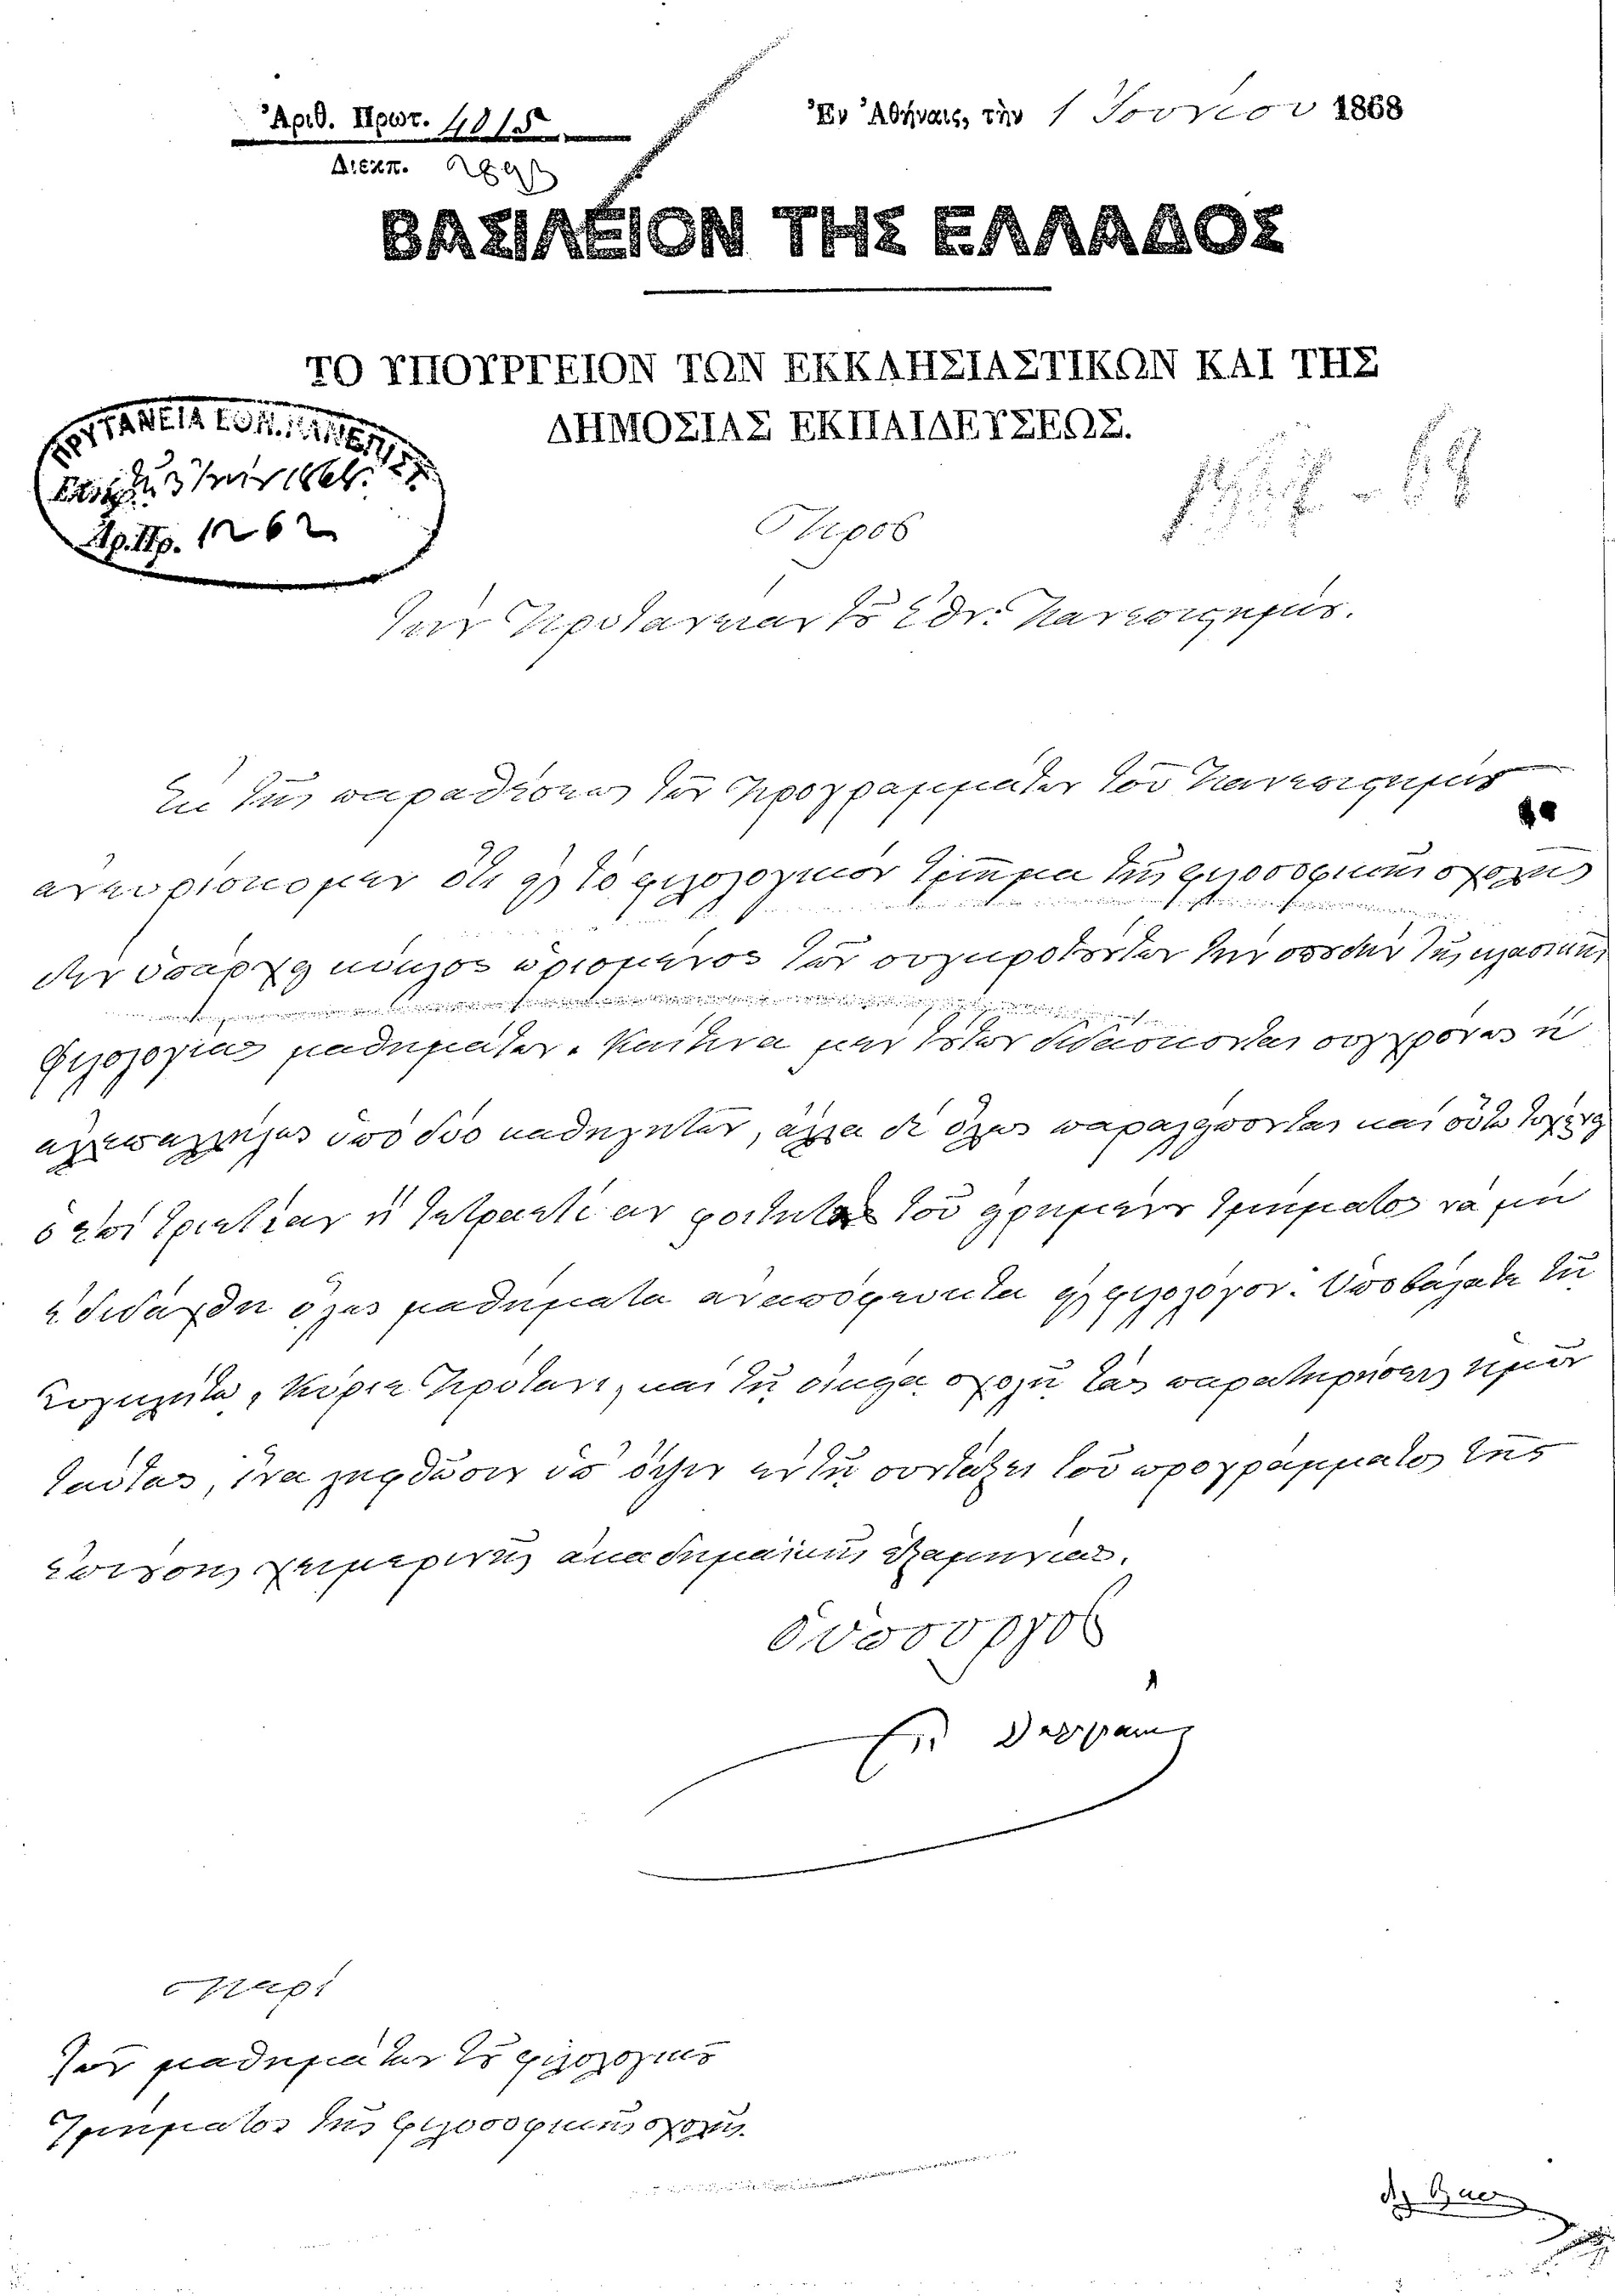 Ἀριθ. Πρωτ. 4815
Διεκπ.
Ἐν Ἀθήναις, τὴν 1 Ἰουνίου 1868
ΒΑΣΙΛΕΙΟΝ ΤΗΣ ΕΛΛΑΔΟΣ
ΤΟ ΥΠΟΥΡΓΕΙΟΝ ΤΩΝ ΕΚΚΛΗΣΙΑΣΤΙΚΩΝ ΚΑΙ ΤΗΣ
ΔΗΜΟΣΙΑΣ ΕΚΠΑΙΔΕΥΣΕΩΣ.
ΠΡΥΤΑΝΕΙΑ ΕΘΝ. ΠΑΝΕΠΙΣΤ
Ἀρ. Πρ. 1262
1867 - 68
Πρὸς
Τὴν Πρυτανείαν τοῦ Ἐθν. Πανεπιστημίου.
Ἐκ τῆς παραθέσεως τῶν προγραμμάτων τοῦ Πανεπιστημίου
ἀνευρίσκομεν ὅτι εἰς τὸ φιλολογικὸν τμῆμα τῆς φιλοσοφικῆς σχολῆς
δὲν ὑπάρχει κύκλος ὡρισμένος τῶν συγκροτούντων τὴν σπουδὴν τῆς κλασικῆς
φιλολογίας μαθημάτων. Καί τινα μὲν τούτων διδάσκονται συγχρόνως ἢ
ἀλλεπαλλήλως ὑπὸ δύο καθηγητῶν, ἄλλα δὲ ὅλως παραλείπονται καὶ οὕτω τυχαίνει
ὁ ἐπὶ τριετίαν ἢ τετραετίαν φοιτητὴς τοῦ εἰρημένου τμήματος νὰ μὴ
ἐδιδάχθη ὅλως μαθήματα ἀναπόφευκτα εἰς φιλόλογον. Ὑποβάλετε τῇ
Συγκλήτῳ, Κύριε Πρύτανι, καὶ τῇ οἰκείᾳ σχολῇ τὰς παρατηρήσεις ἡμῶν
ταύτας, ἵνα ληφθῶσιν ὑπ' ὄψιν ἐν τῇ συντάξει τοῦ προγράμματος τῆς
ἐπιούσης χειμερινῆς ἀκαδημαϊκῆς ἑξαμηνίας.
Ὁ Ὑπουργὸς
Περὶ
τῶν μαθημάτων τοῦ φιλολογικοῦ
τμήματος τῆς φιλοσοφικῆς σχολῆς.